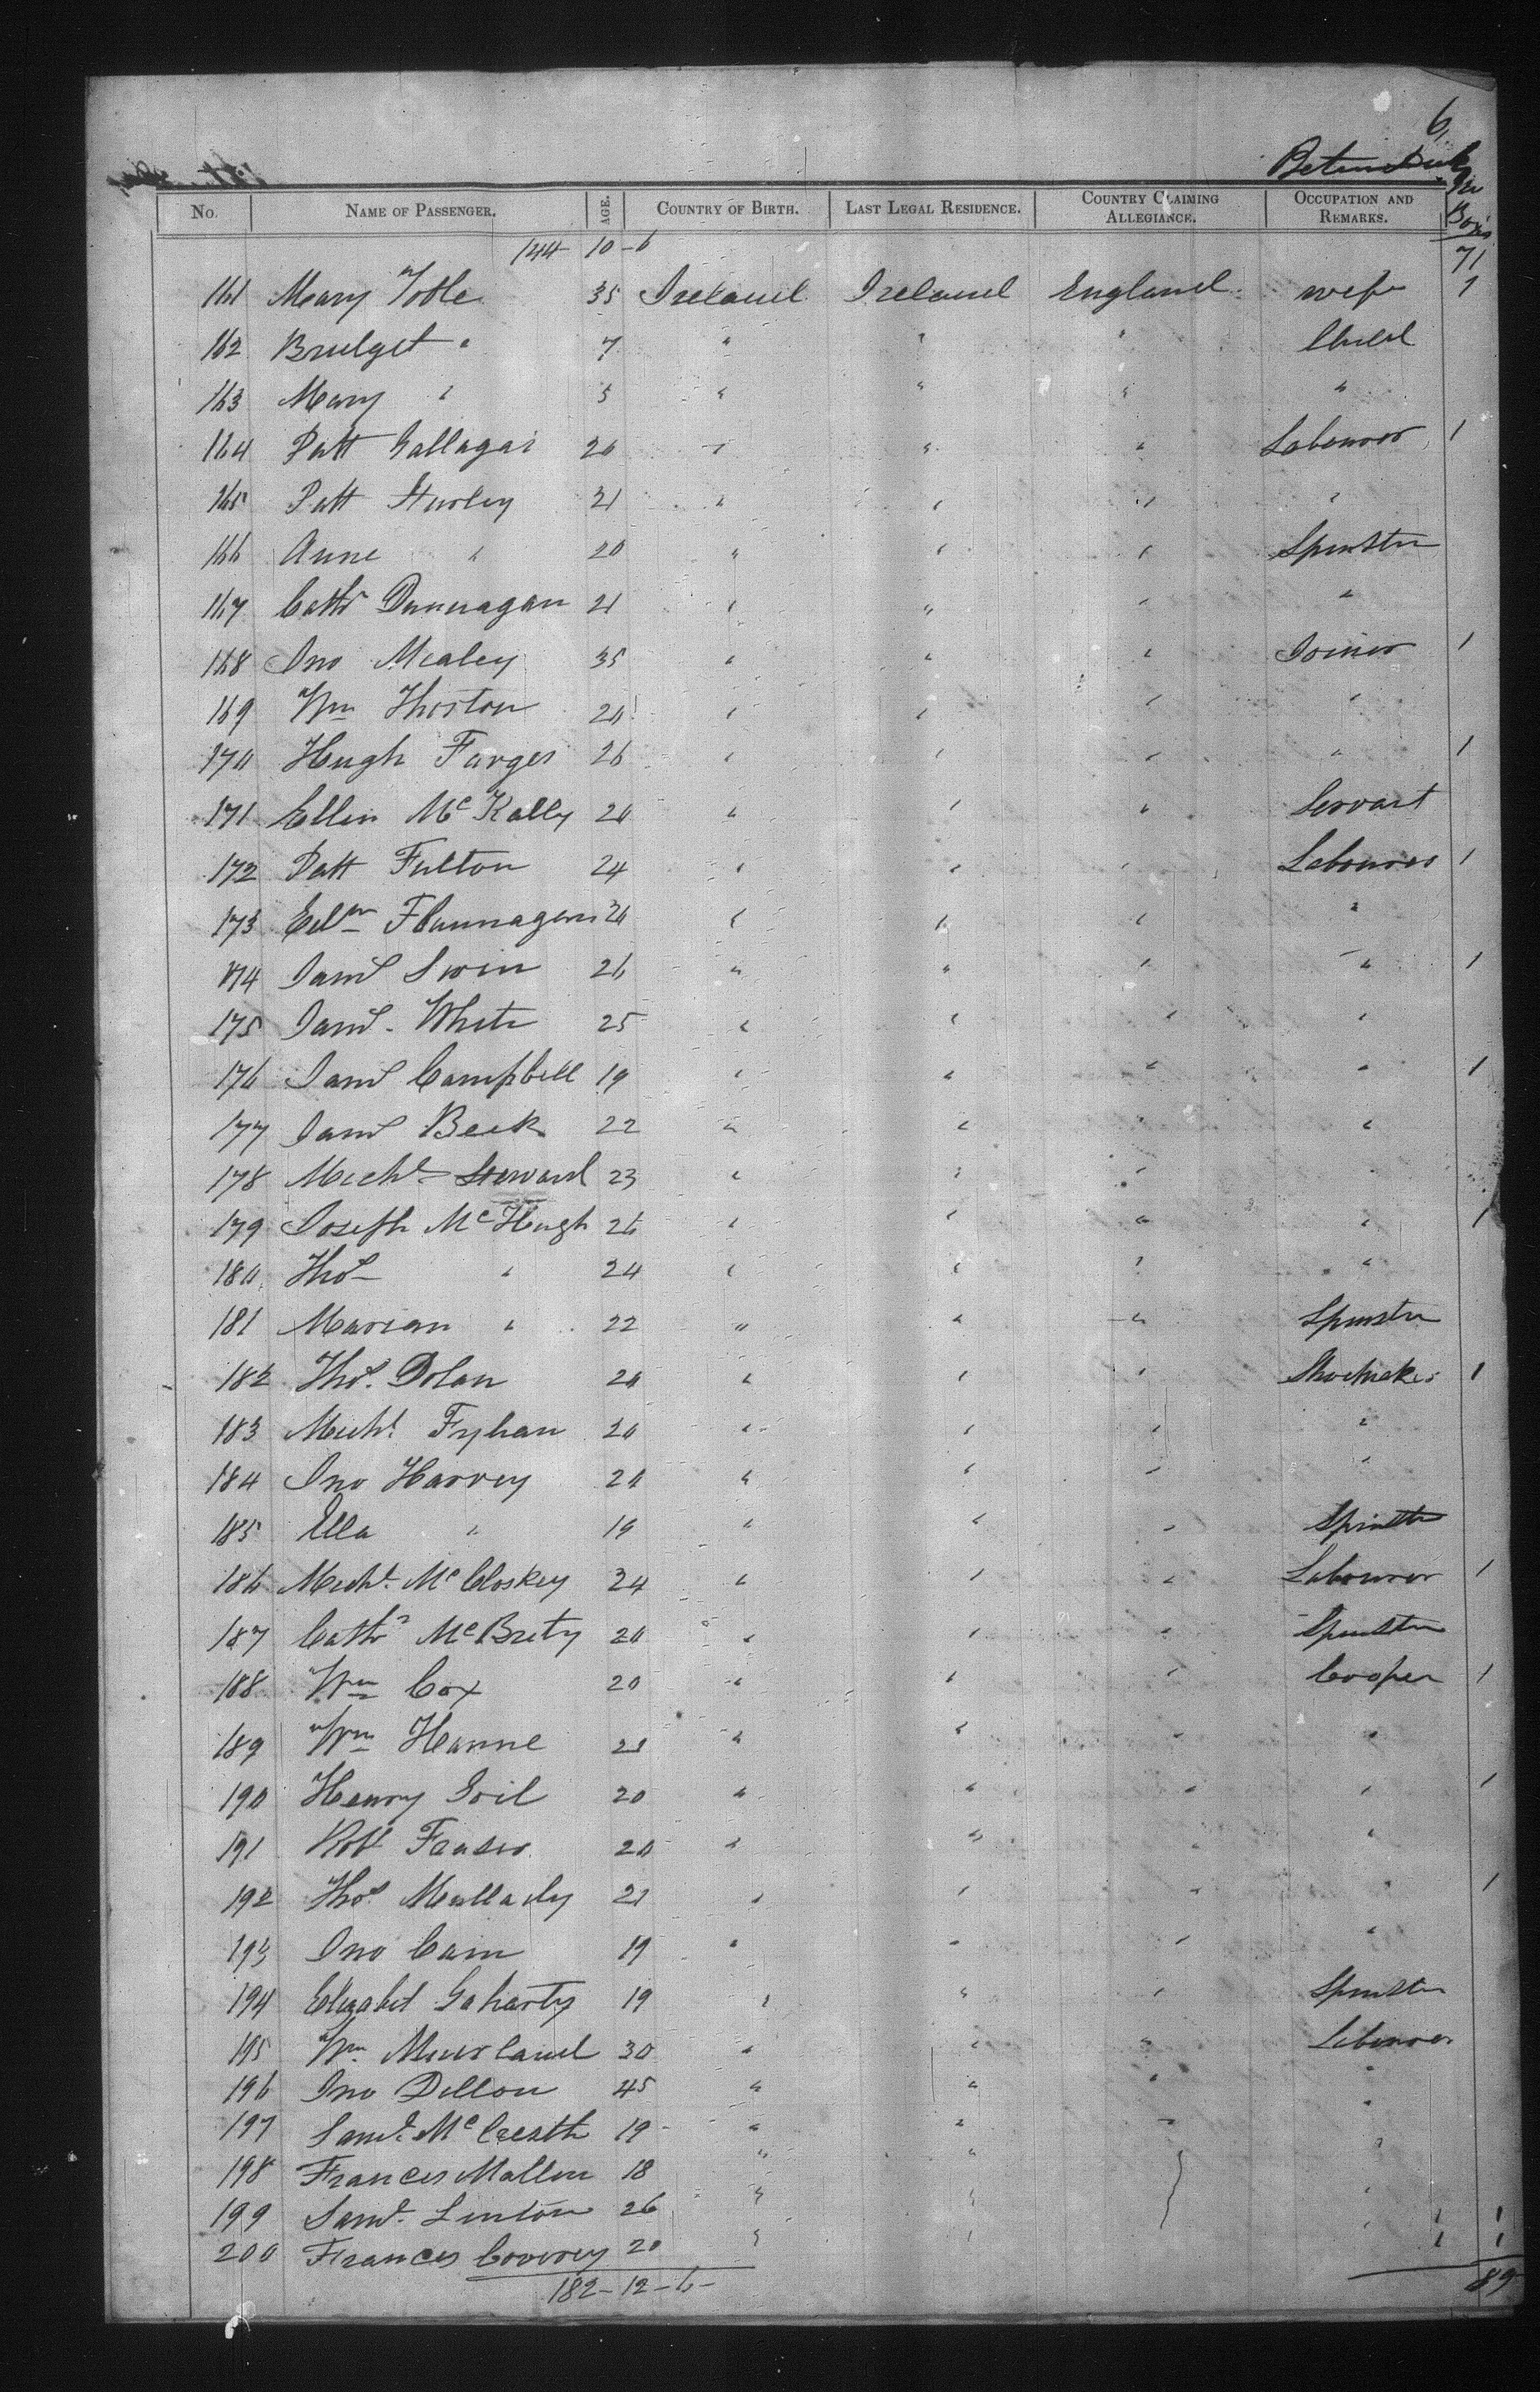 6
Between Deck
No. NAME OF PASSENGER. AGE. COUNTRY OF BIRTH. LAST LEGAL RESIDENCE. COUNTRY CLAIMING ALLEGIANCE. OCCUPATION AND REMARKS. Boxes
144 10-6 71
161 Mary Toble 35 Ireland Ireland England wife 1
162 Bridget " 7 " " " Child
163 Mary " 5 " " " "
164 Patt Gallagar 20 " " " Labourer 1
165 Patt Hurley 21 " " " "
166 Anne " 20 " " " Spinster
167 Cathr Dannagan 21 " " " "
168 Jno Mealey 35 " " " Joiner 1
169 Wm Thorston 20 " " " "
170 Hugh Farges 26 " " " " 1
171 Ellen McKally 20 " " " Servant
172 Patt Fulton 24 " " " Labourer 1
173 Edwn Flannagan 20 " " " "
174 Saml Swin 26 " " " " 1
175 Saml White 25 " " " "
176 Saml Campbell 19 " " " " 1
177 Saml Beck 22 " " " "
178 Michl Steward 23 " " " "
179 Joseph McHugh 26 " " " " 1
180 Thos " 24 " " " "
181 Marian " 22 " " " Spinster
182 Thos. Dolan 20 " " " Shoemaker 1
183 Michl Fyhan 20 " " " "
184 Jno Harvey 20 " " " "
185 Ella " 19 " " " Spinster
186 Michl. McCloskey 24 " " " Labourer 1
187 Cathr McBrety 20 " " " Spinster
188 Wm Cox 20 " " " Cooper 1
189 Wm Hanne 21 " " " "
190 Henry Goil 20 " " " " 1
191 Robt Feaser 20 " " " "
192 Thos Mullady 21 " " " " 1
193 Jno Cain 19 " " " "
194 Elizabet Gaharty 19 " " " Spinster
195 Wm. Muirland 30 " " " Labourer
196 Jno Dillon 45 " " " "
197 Saml. 19 " " " "
198 Frances Mallen 18 " " "
199 Saml. Linton 26 " " " 1 1
200 Frances Conroy 20 " " " 1 1
182-12-6- 89